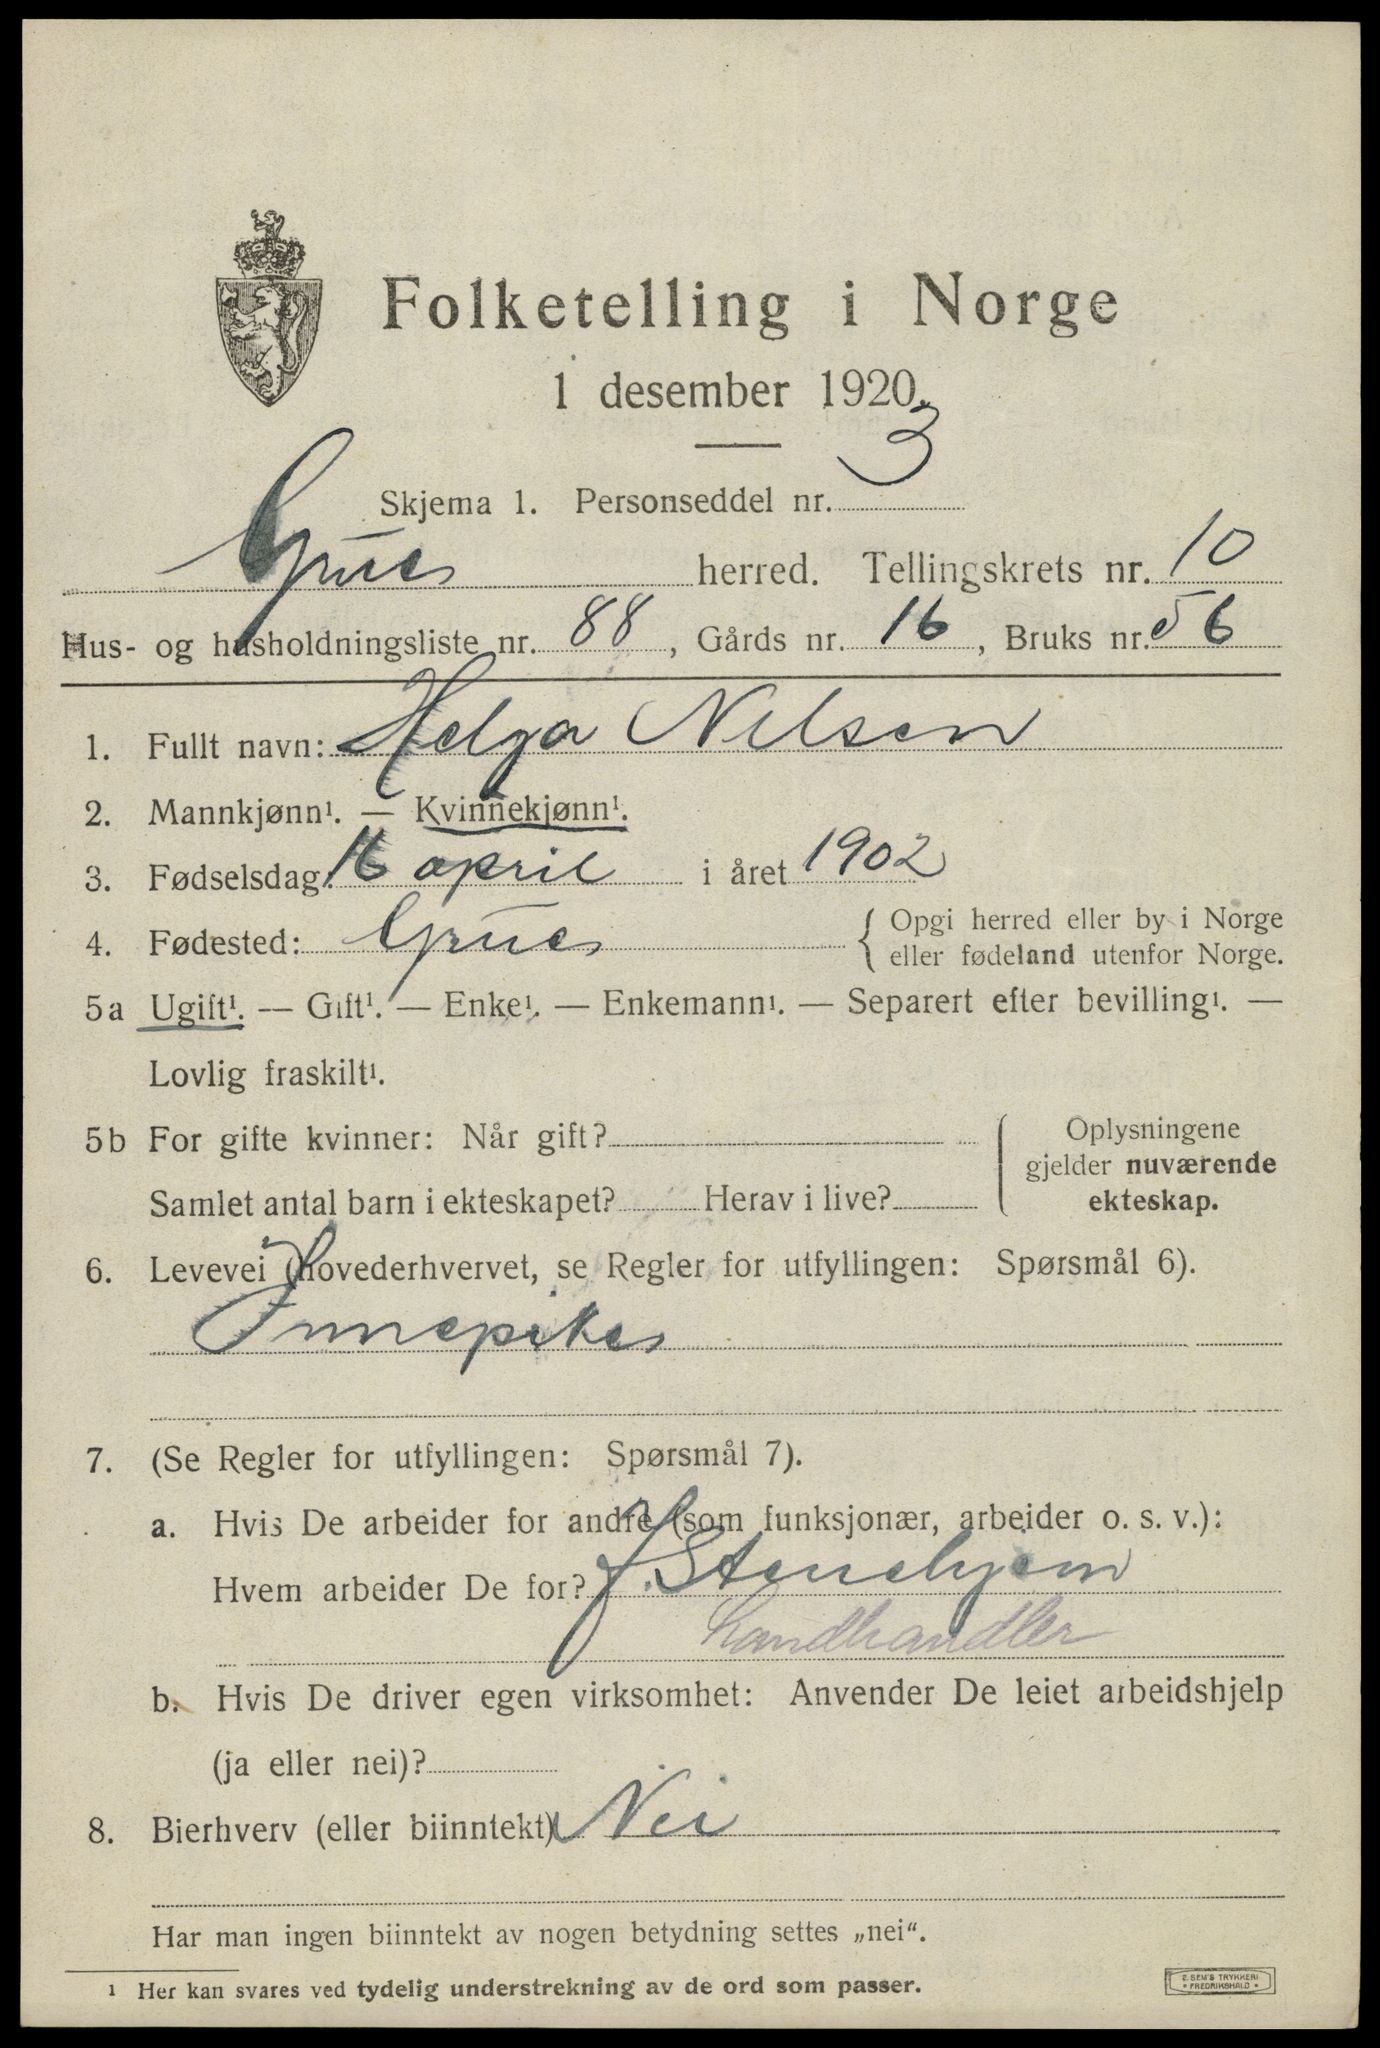 Folketelling i Norge
1 desember 1920.
Skjema 1. Personseddel nr. 3
Grue herred. Tellingskrets nr. 10
Hus- og husholdningsliste nr. 88, Gårds nr. 16, Bruks nr. 56
1. Fullt navn: Helga Nilsen
2. Mannkjønn¹. — Kvinnekjønn¹.
3. Fødselsdag: 16 april i året 1902
4. Fødested: Grue { Opgi herred eller by i Norge
eller fødeland utenfor Norge.
5a Ugift¹. — Gift¹. — Enke¹. — Enkemann¹. — Separert efter bevilling¹. —
Lovlig fraskilt¹.
5b For gifte kvinner: Når gift?
Samlet antal barn i ekteskapet? Herav i live?
Oplysningene
gjelder nuværende
ekteskap.
6. Levevei (hovederhvervet, se Regler for utfyllingen: Spørsmål 6).
Innepike
7. (Se Regler for utfyllingen: Spørsmål 7).
a. Hvis De arbeider for andre (som funksjonær, arbeider o. s. v.):
Hvem arbeider De for? J. Stenehjem
Landhandler
b. Hvis De driver egen virksomhet: Anvender De leiet arbeidshjelp
(ja eller nei)?
8. Bierhverv (eller biinntekt) Nei
Har man ingen biinntekt av nogen betydning settes „nei“.
¹ Her kan svares ved tydelig understrekning av de ord som passer.
E. SEM'S TRYKKERI
• FREDRIKSHALD •